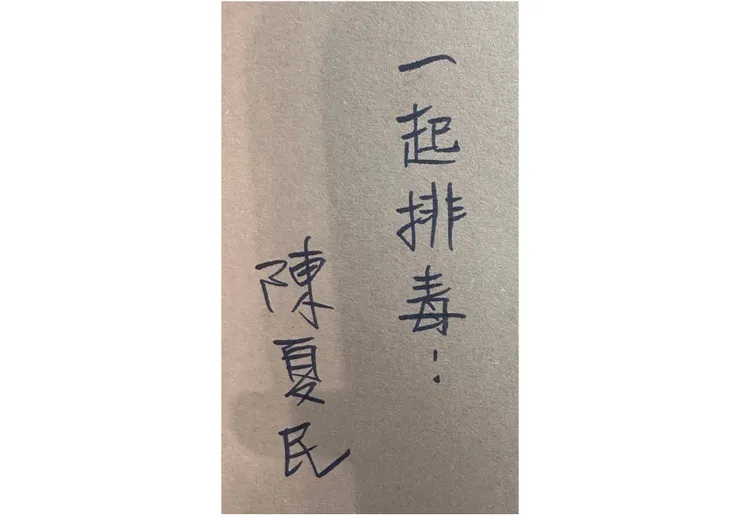 一起排毒：
陳夏民